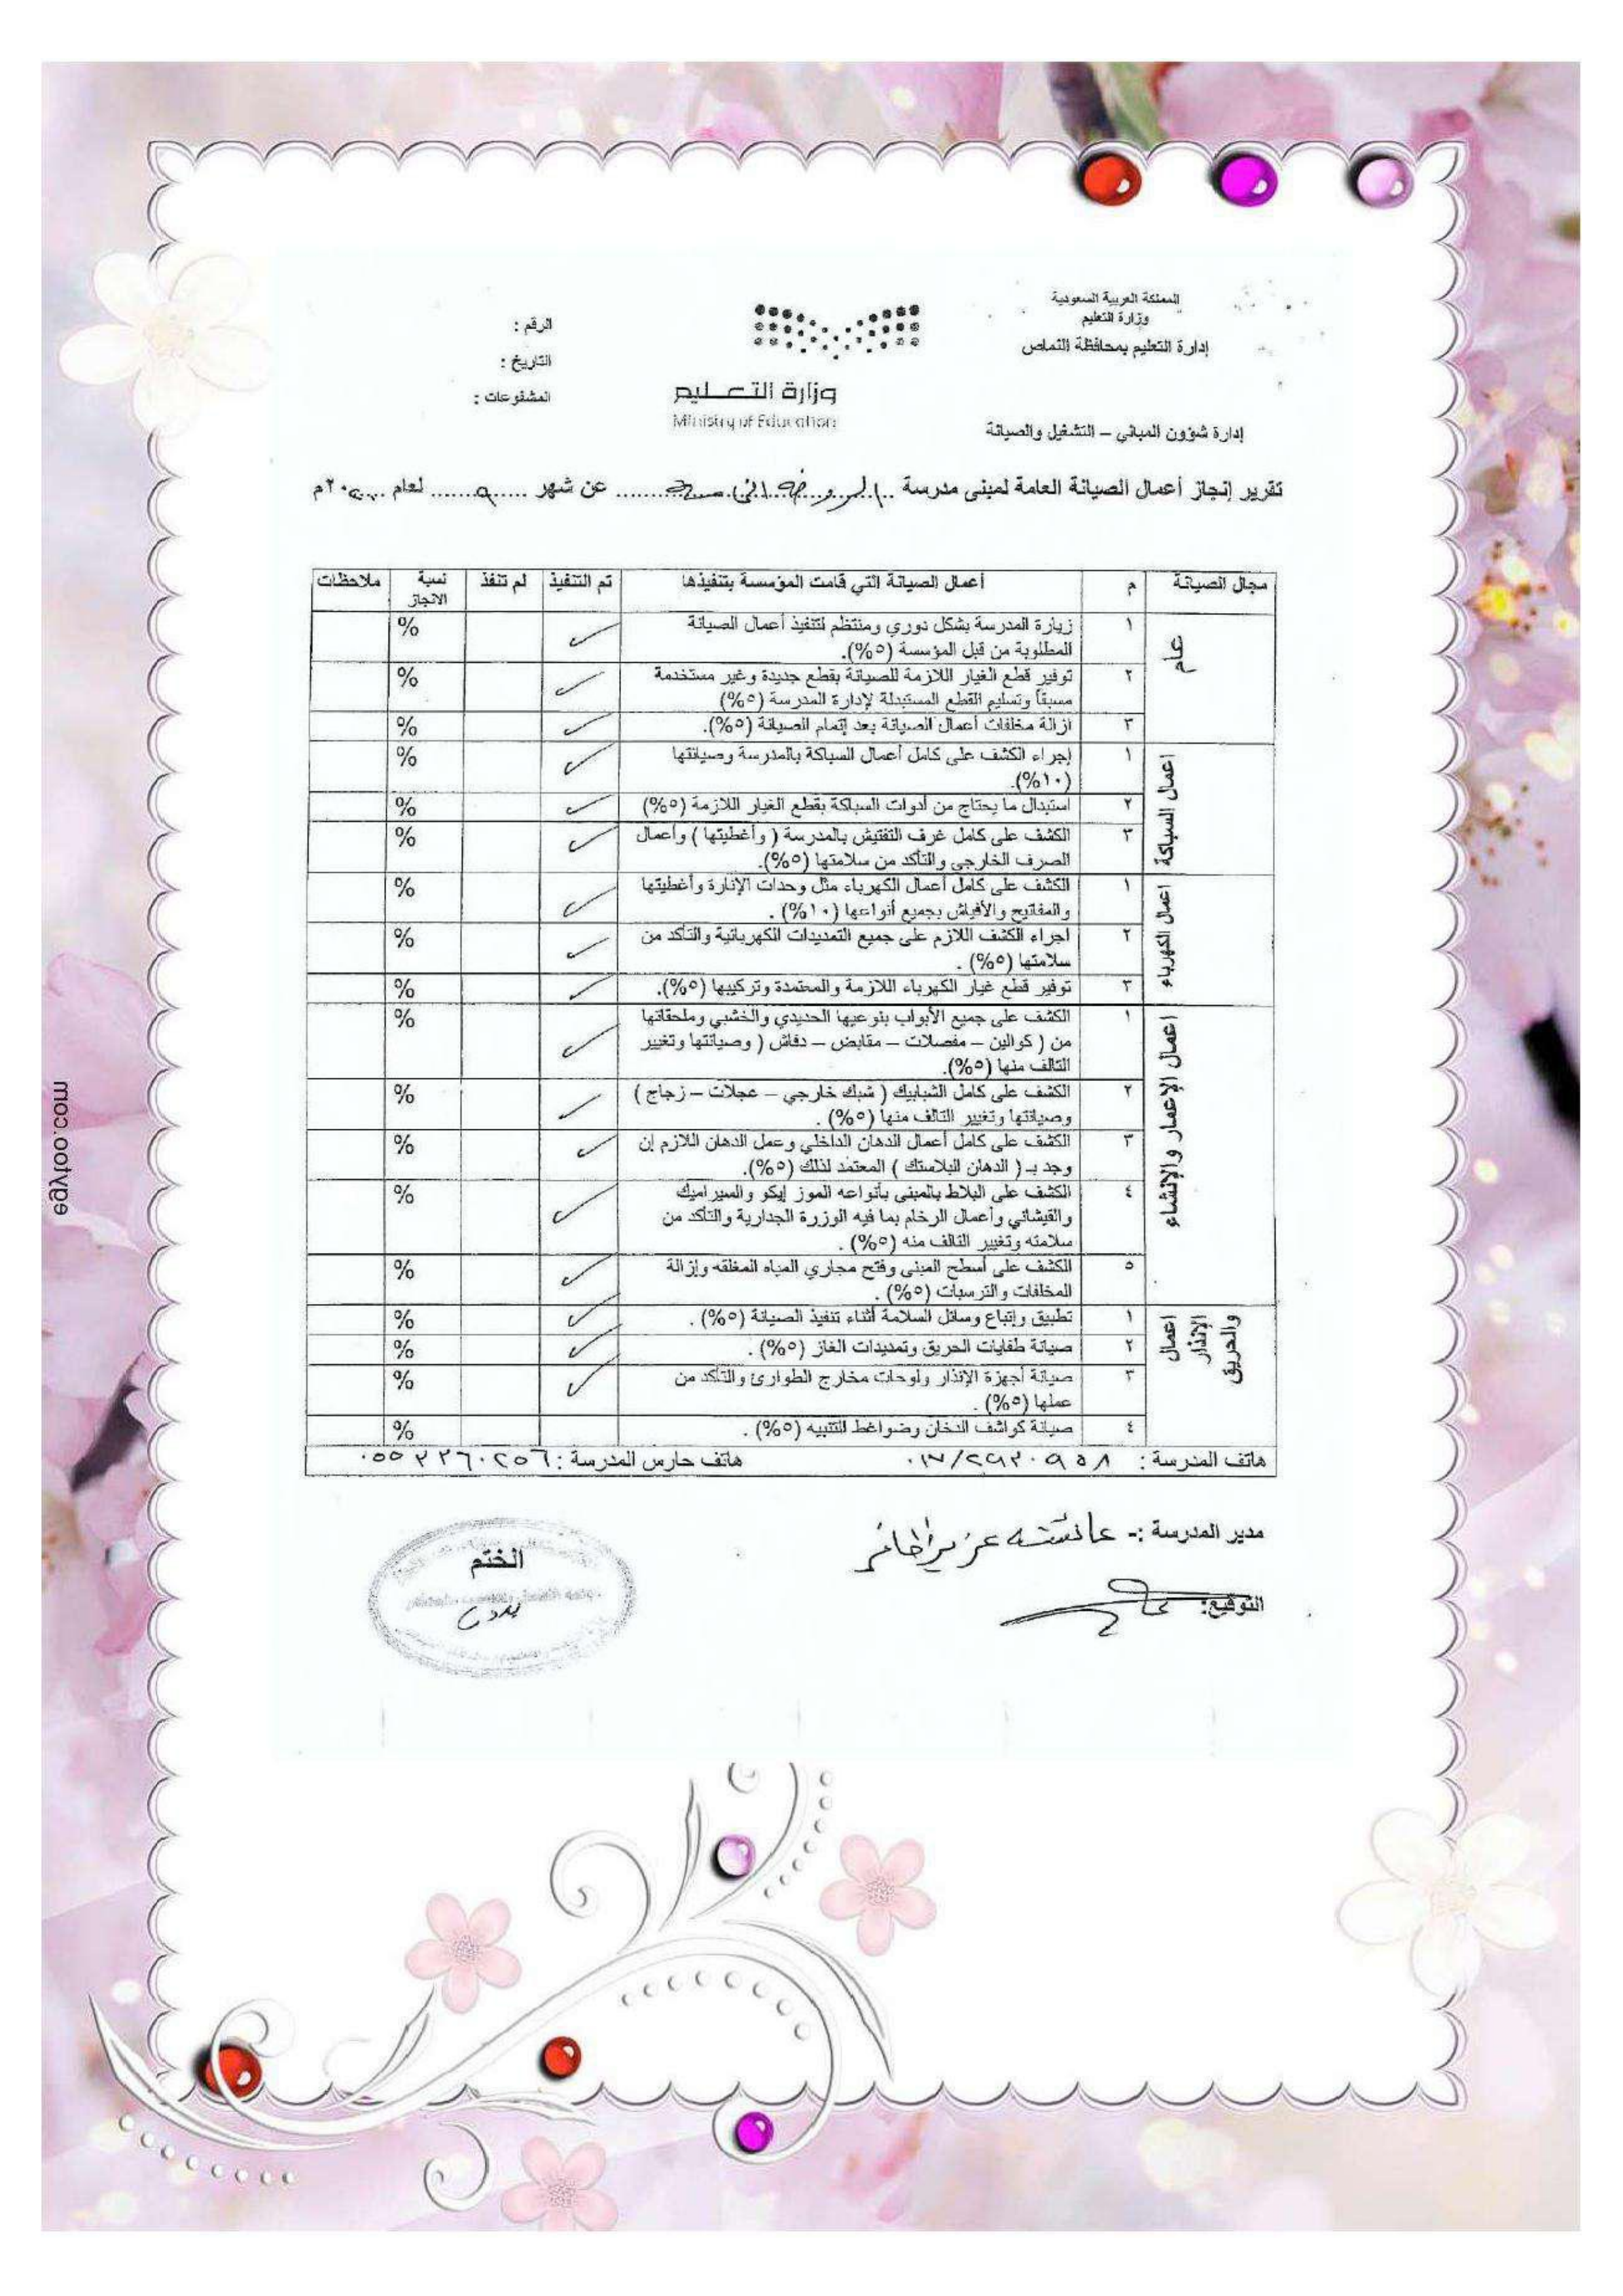 المملكة العربية السعودية
وزارة التعليم
إدارة التعليم بمحافظة النماص
إدارة شؤون المباني – التشغيل والصيانة
وزارة التعليم
Ministry of Education
الرقم :
التاريخ :
المشفوعات :
تقرير إنجاز أعمال الصيانة العامة لمبنى مدرسة ..الروضة الثا.......... عن شهر ......٩...... لعام ......٢٠م
مجال الصيانة م أعمال الصيانة التي قامت المؤسسة بتنفيذها تم التنفيذ لم تنفذ نسبة الانجاز ملاحظات
عام
١ زيارة المدرسة بشكل دوري ومنتظم لتنفيذ أعمال الصيانة %
المطلوبة من قبل المؤسسة (٥%).
٢ توفير قطع الغيار اللازمة للصيانة بقطع جديدة وغير مستخدمة %
مسبقاً وتسليم القطع المستبدلة لإدارة المدرسة (٥%)
٣ ازالة مخلفات أعمال الصيانة بعد إتمام الصيانة (٥%). %
اعمال السباكة
١ إجراء الكشف على كامل أعمال السباكة بالمدرسة وصيانتها %
(١٠%).
٢ استبدال ما يحتاج من أدوات السباكة بقطع الغيار اللازمة (٥%) %
٣ الكشف على كامل غرف التفتيش بالمدرسة ( وأغطيتها ) وأعمال %
الصرف الخارجي والتأكد من سلامتها (٥%).
اعمال الكهرباء
١ الكشف على كامل أعمال الكهرباء مثل وحدات الإنارة وأغطيتها %
والمفاتيح والأفياش بجميع أنواعها (١٠%) .
٢ اجراء الكشف اللازم على جميع التمديدات الكهربائية والتأكد من %
سلامتها (٥%) .
٣ توفير قطع غيار الكهرباء اللازمة والمعتمدة وتركيبها (٥%). %
اعمال الإعمار والإنشاء
١ الكشف على جميع الأبواب بنوعيها الحديدي والخشبي وملحقاتها %
من ( كوالين – مفصلات – مقابض – دفاش ( وصيانتها وتغيير
التالف منها (٥%).
٢ الكشف على كامل الشبابيك ( شبك خارجي – عجلات – زجاج ) %
وصيانتها وتغيير التالف منها (٥%) .
٣ الكشف على كامل أعمال الدهان الداخلي وعمل الدهان اللازم إن %
وجد بـ ( الدهان البلاستك ) المعتمد لذلك (٥%).
٤ الكشف على البلاط بالمبنى بأنواعه الموز إيكو والسيراميك %
والقيشاني وأعمال الرخام بما فيه الوزرة الجدارية والتأكد من
سلامته وتغيير التالف منه (٥%) .
٥ الكشف على أسطح المبنى وفتح مجاري المياه المغلقه وإزالة %
المخلفات والترسبات (٥%) .
اعمال الإنذار والحريق
١ تطبيق وإتباع وسائل السلامة أثناء تنفيذ الصيانة (٥%) . %
٢ صيانة طفايات الحريق وتمديدات الغاز (٥%) . %
٣ صيانة أجهزة الإنذار ولوحات مخارج الطوارئ والتأكد من %
عملها (٥%) .
٤ صيانة كواشف الدخان وضواغط التنبيه (٥%) . %
هاتف المدرسة : ٠١٧/٢٩٢٠٩٥٨ هاتف حارس المدرسة :٠٥٥٢٢٦٠٢٥٦
مدير المدرسة :- عائشه عزيز
التوقيع:
الختم
egytoo.com